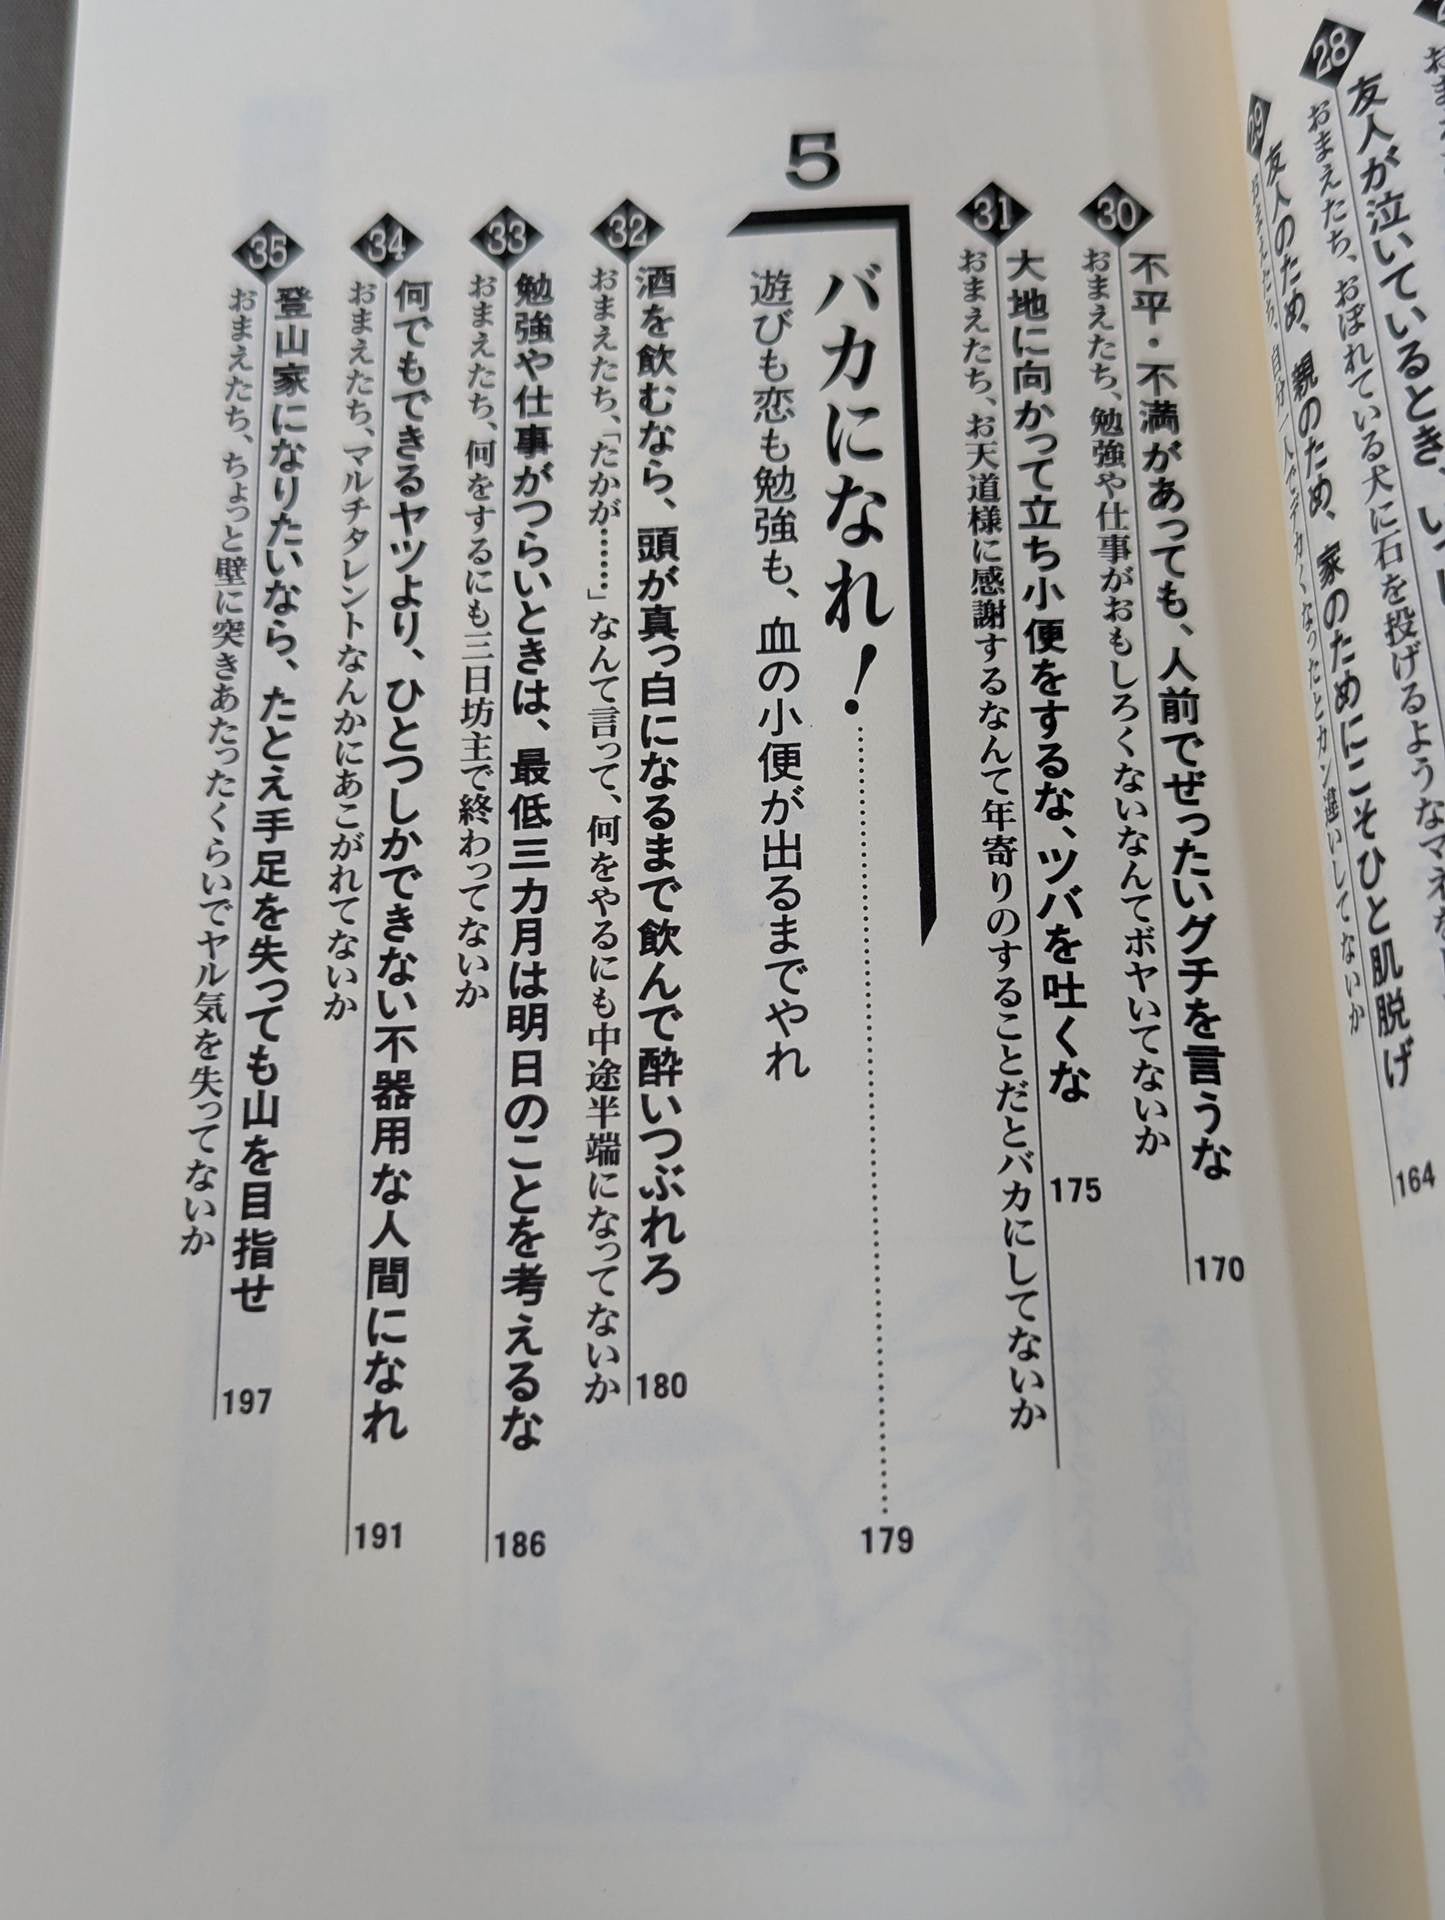 28
友人が泣いているとき、
おまえたち、おぼれている犬に石を投げるようなマネを
29
友人のため、親のため、家のためにこそひと肌脱げ
おまえたち、自分一人でデカくなったとカン違いしてないか
164
30
不平・不満があっても、人前でぜったいグチを言うな
170
おまえたち、勉強や仕事がおもしろくないなんてボヤいてないか
31
大地に向かって立ち小便をするな、ツバを吐くな
175
おまえたち、お天道様に感謝するなんて年寄りのすることだとバカにしてないか
5
バカになれ!
179
遊びも恋も勉強も、血の小便が出るまでやれ
32
酒を飲むなら、頭が真っ白になるまで飲んで酔いつぶれろ
180
おまえたち、「たかが……」なんて言って、何をやるにも中途半端になってないか
33
勉強や仕事がつらいときは、最低三カ月は明日のことを考えるな
186
おまえたち、何をするにも三日坊主で終わってないか
34
何でもできるヤツより、ひとつしかできない不器用な人間になれ
191
おまえたち、マルチタレントなんかにあこがれてないか
35
登山家になりたいなら、たとえ手足を失っても山を目指せ
197
おまえたち、ちょっと壁に突きあたったくらいでヤル気を失ってないか